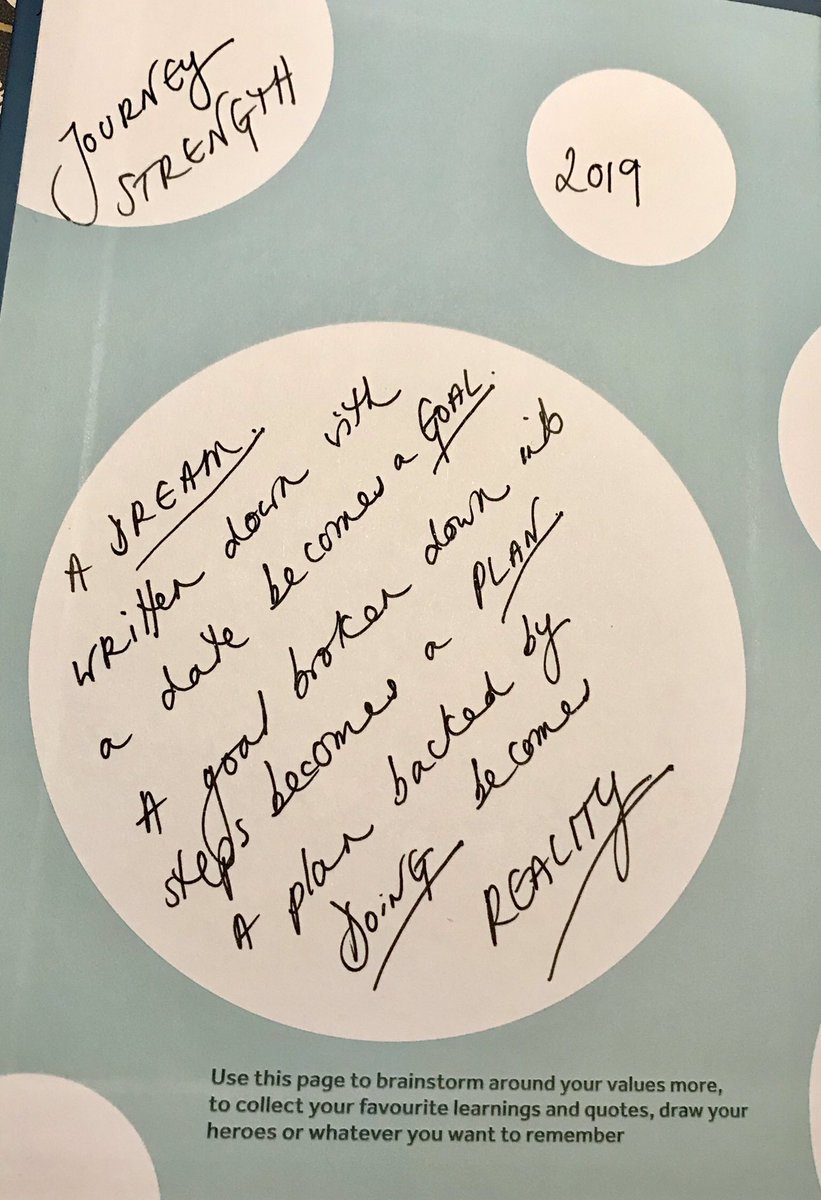 JOURNEY
STRENGTH
2019
A DREAM.
WRitten down with
a date becomes a GOAL.
A goal broken down into
steps becomes a PLAN.
A plan backed by
DOING becomes
REALITY
Use this page to brainstorm around your values more,
to collect your favourite learnings and quotes, draw your
heroes or whatever you want to remember